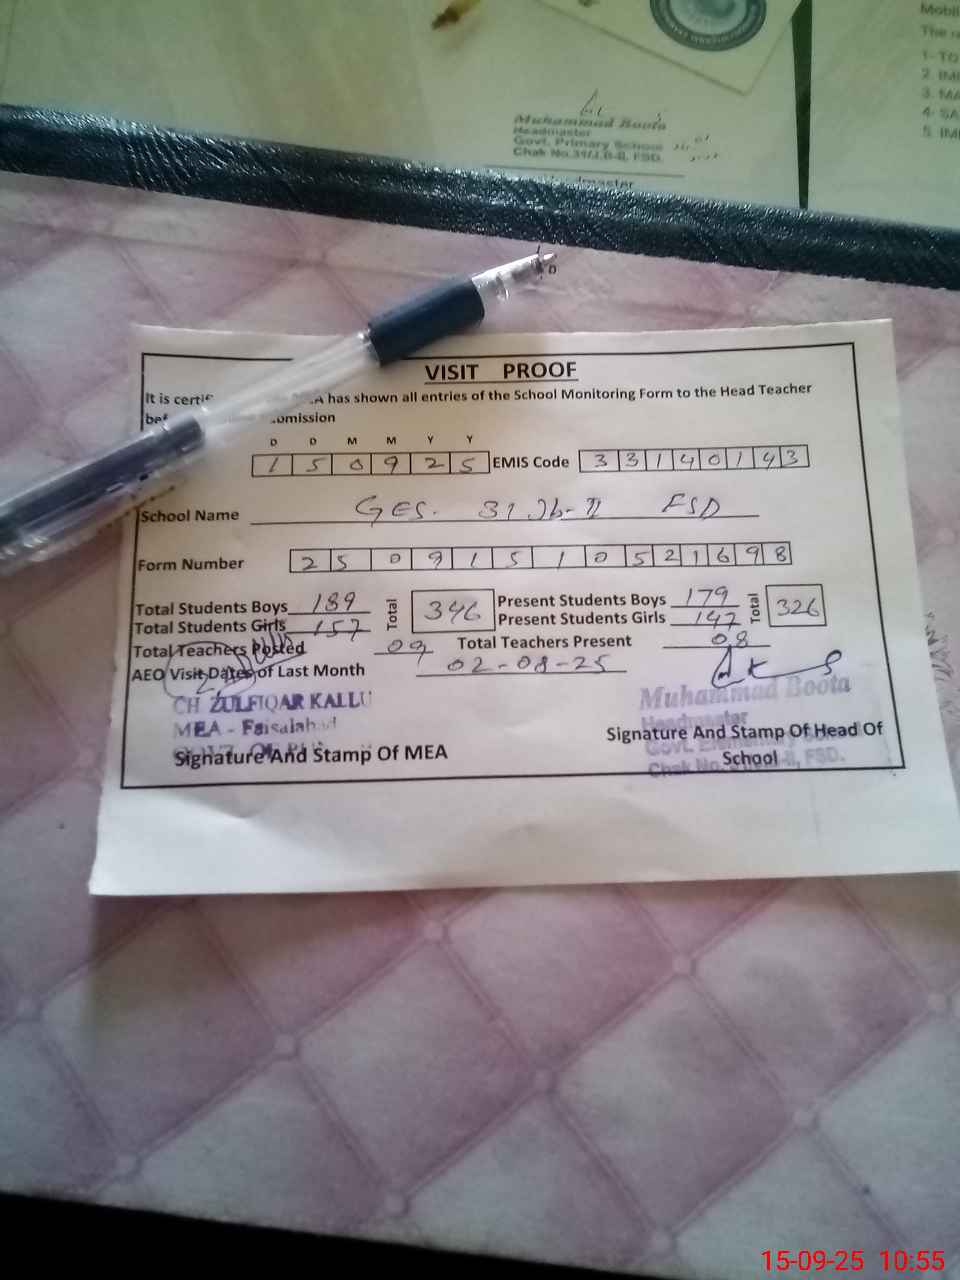 Mobil
The
1- TO
2. IMI
3. MA
4- SA
5. IMI
Muhammad Boota
Headmaster
Govt. Primary School
Chak No.31/J.B-II, FSD.
VISIT PROOF
It is has shown all entries of the School Monitoring Form to the Head Teacher
D D M M Y Y
1 5 0 9 2 5 EMIS Code 3 3 1 4 0 1 4 3
School Name GES. 31 Jb-II FSD
Form Number 2 5 0 9 1 5 1 0 5 2 1 6 9 8
Total Students Boys 189 Total 346 Present Students Boys 179 Total 326
Total Students Girls 157 Present Students Girls 147
Total Teachers Posted 09 Total Teachers Present 08
AEO Visit Dates of Last Month 02-08-25
CH ZULFIQAR KALLU
MEA - Faisalabad
Signature And Stamp Of MEA
Muhammad Boota
Headmaster
Signature And Stamp Of Head Of
Govt. Elementary School
School
Chak No. FSD.
15-09-25 10:55